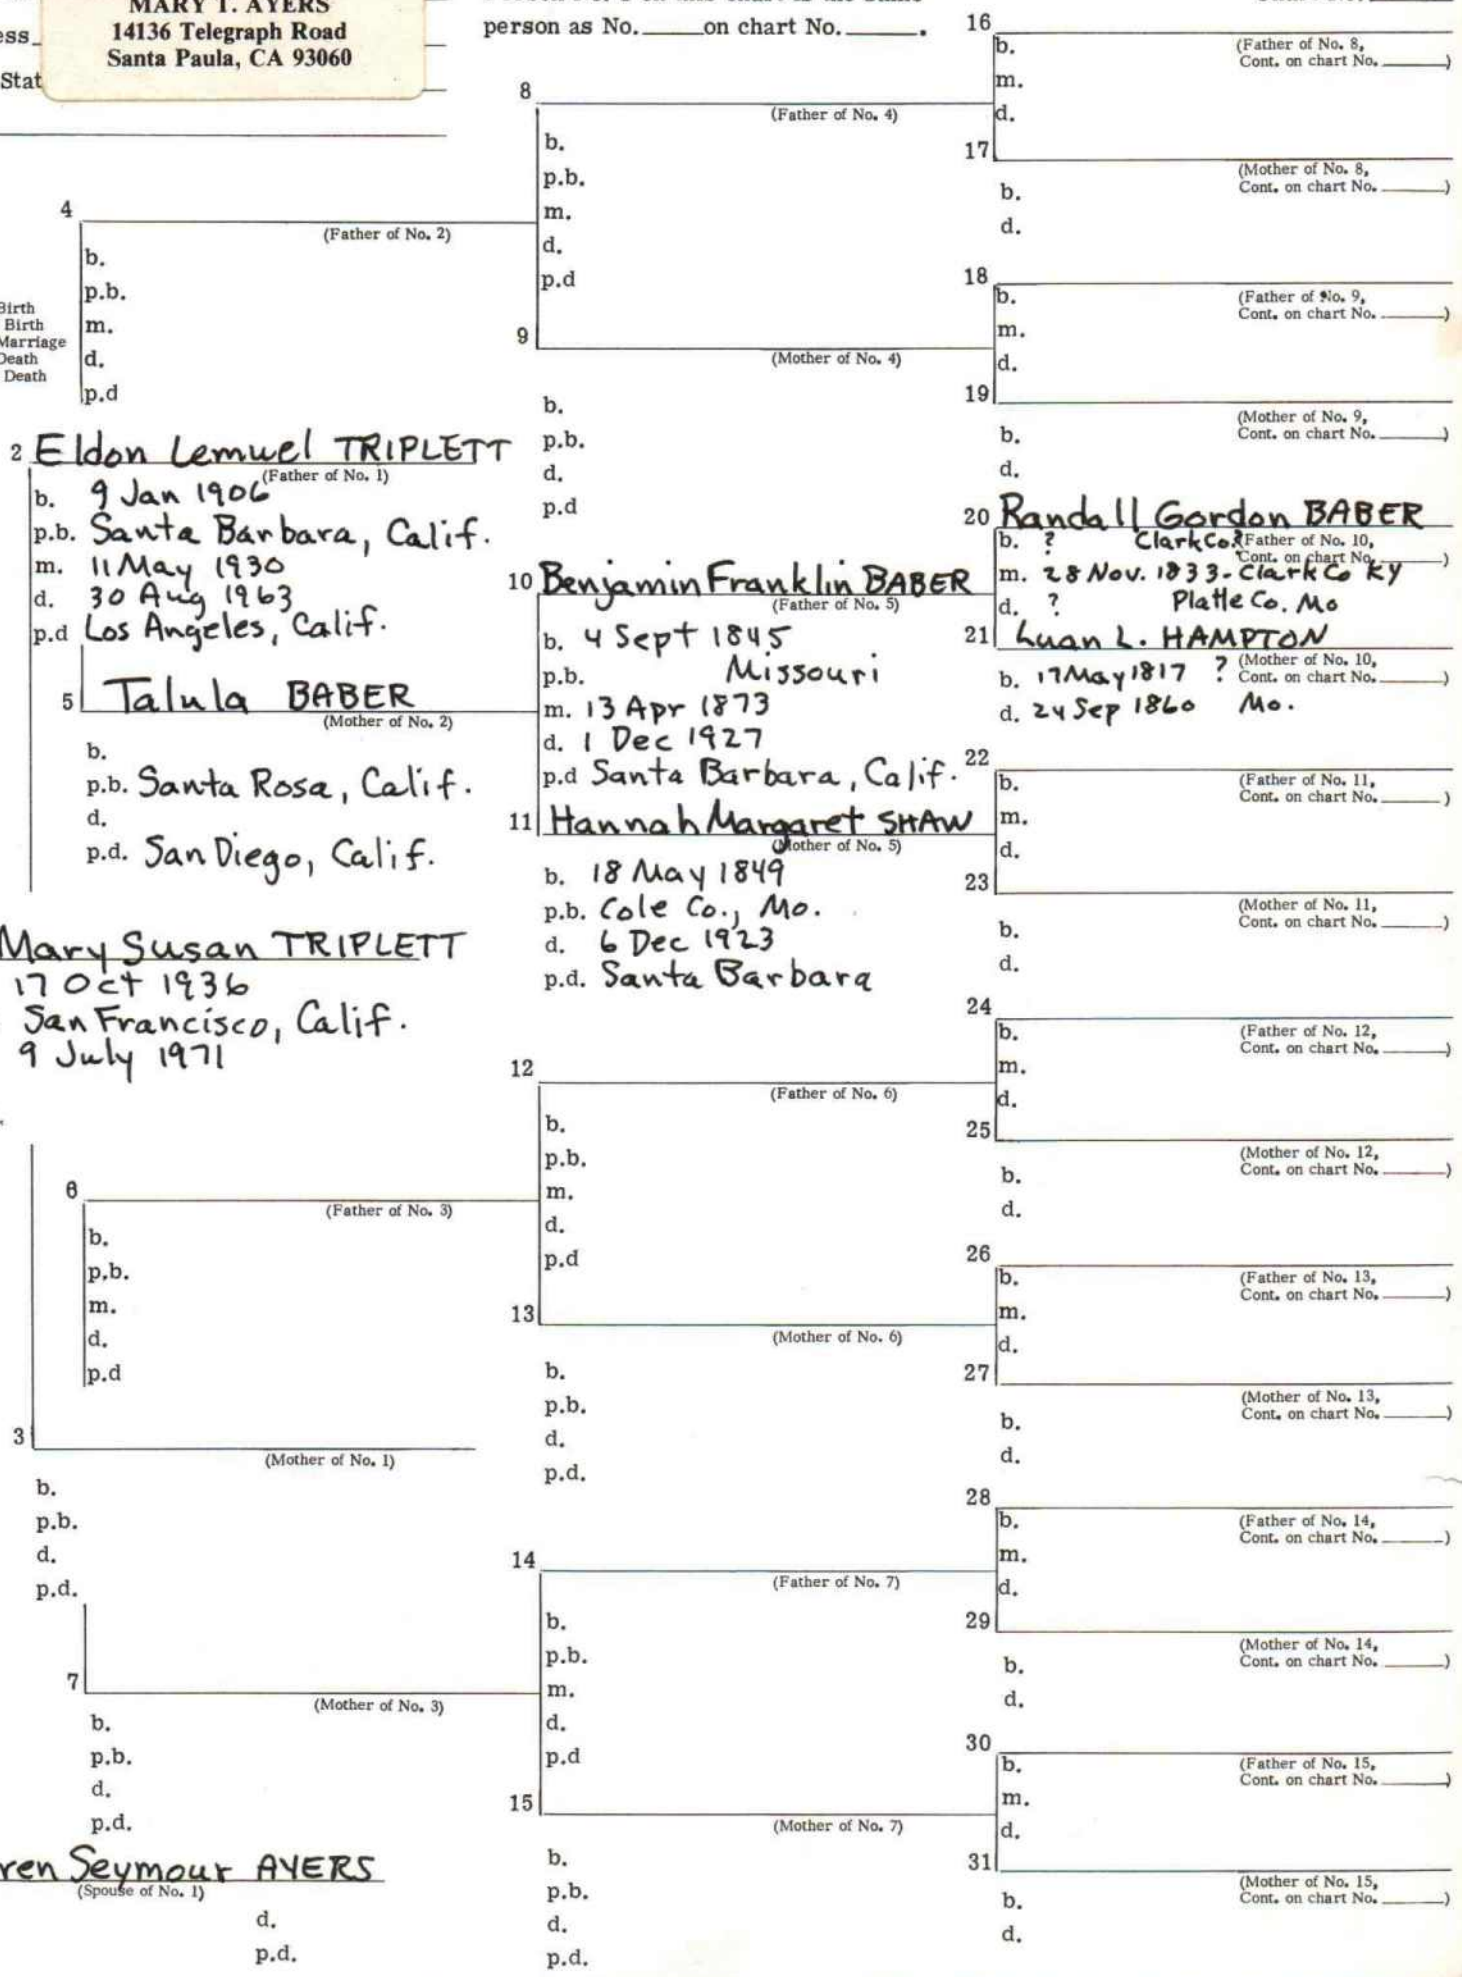 MARY T. AYERS
14136 Telegraph Road
Santa Paula, CA 93060
ess
Stat
person as No. ____ on chart No. ____.
Birth
Birth
Marriage
Death
Death
4
(Father of No. 2)
b.
p.b.
m.
d.
p.d
2 Eldon Lemuel TRIPLETT
(Father of No. 1)
b. 9 Jan 1906
p.b. Santa Barbara, Calif.
m. 11 May 1930
d. 30 Aug 1963
p.d Los Angeles, Calif.
5 Talula BABER
(Mother of No. 2)
b.
p.b. Santa Rosa, Calif.
d.
p.d. San Diego, Calif.
Mary Susan TRIPLETT
17 Oct 1936
San Francisco, Calif.
9 July 1971
6
(Father of No. 3)
b.
p.b.
m.
d.
p.d
3
(Mother of No. 1)
b.
p.b.
d.
p.d.
7
(Mother of No. 3)
b.
p.b.
d.
p.d.
ren Seymour AYERS
(Spouse of No. 1)
d.
p.d.
8
(Father of No. 4)
b.
p.b.
m.
d.
p.d
9
(Mother of No. 4)
b.
p.b.
d.
p.d
10 Benjamin Franklin BABER
(Father of No. 5)
b. 4 Sept 1845
p.b. Missouri
m. 13 Apr 1873
d. 1 Dec 1927
p.d Santa Barbara, Calif.
11 Hannah Margaret SHAW
(Mother of No. 5)
b. 18 May 1849
p.b. Cole Co., Mo.
d. 6 Dec 1923
p.d. Santa Barbara
12
(Father of No. 6)
b.
p.b.
m.
d.
p.d
13
(Mother of No. 6)
b.
p.b.
d.
p.d.
14
(Father of No. 7)
b.
p.b.
m.
d.
p.d
15
(Mother of No. 7)
b.
p.b.
d.
p.d.
16
b. (Father of No. 8,
Cont. on chart No. ____)
m.
d.
17
(Mother of No. 8,
b. Cont. on chart No. ____)
d.
18
b. (Father of No. 9,
Cont. on chart No. ____)
m.
d.
19
(Mother of No. 9,
b. Cont. on chart No. ____)
d.
20 Randall Gordon BABER
b. ? Clark Co.? (Father of No. 10,
Cont. on chart No. ____)
m. 28 Nov. 1833 - Clark Co KY
d. ? Platte Co. Mo
21 Luan L. HAMPTON
(Mother of No. 10,
b. 17 May 1817 ? Cont. on chart No. ____)
d. 24 Sep 1860 Mo.
22
b. (Father of No. 11,
Cont. on chart No. ____)
m.
d.
23
(Mother of No. 11,
b. Cont. on chart No. ____)
d.
24
b. (Father of No. 12,
Cont. on chart No. ____)
m.
d.
25
(Mother of No. 12,
b. Cont. on chart No. ____)
d.
26
b. (Father of No. 13,
Cont. on chart No. ____)
m.
d.
27
(Mother of No. 13,
b. Cont. on chart No. ____)
d.
28
b. (Father of No. 14,
Cont. on chart No. ____)
m.
d.
29
(Mother of No. 14,
b. Cont. on chart No. ____)
d.
30
b. (Father of No. 15,
Cont. on chart No. ____)
m.
d.
31
(Mother of No. 15,
b. Cont. on chart No. ____)
d.